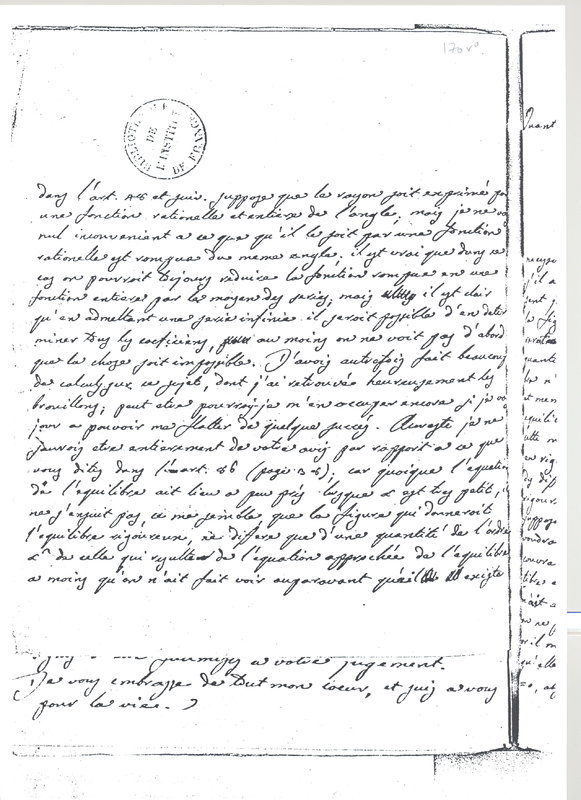 170 v°.
BIBLIOTHEQUE DE L'INSTITUT DE FRANCE
dans l'art. et suiv. suppose que le rayon soit exprimé par
une fonction rationelle et entiere de l'angle; mais je ne vois
nul inconvenient a ce que qu'il le soit par une fonction
rationelle et rompue du meme angle; il est vrai que dans ce
cas on pourroit toujours reduire la fonction rompue en une
fonction entiere par le moyen des series; mais il est clair
qu'en admettant une serie infinie il seroit possible d'en deter
miner tous les coeficiens, au moins on ne voit pas d'abord
que la chose soit impossible. J'avois autrefois fait beaucoup
de calculs sur ce sujet, dont j'ai retrouvée heureusement les
brouillons; peut etre pourrois-je m'en occuper encore si je vois
jour a pouvoir me flatter de quelque succés. Aureste je ne
saurois etre entierement de votre avis par rapport a ce que
vous dites dans l'art. 36 (page ); car quoique l'equation
de l'equilibre ait lieu a peu prés lorsque α est tres petit, il
ne s'ensuit pas, ce me semble que la figure qui donneroit
l'equilibre rigoureux, ne differe que d'une quantité de l'ordre
de celle qui resulte de l'equation approchée de l'equilibre
a moins qu'on n'ait fait voir auparavant qu'il existe
a votre jugement.
Je vous embrasse de tout mon coeur, et suis a vous
pour la vie.
Quant